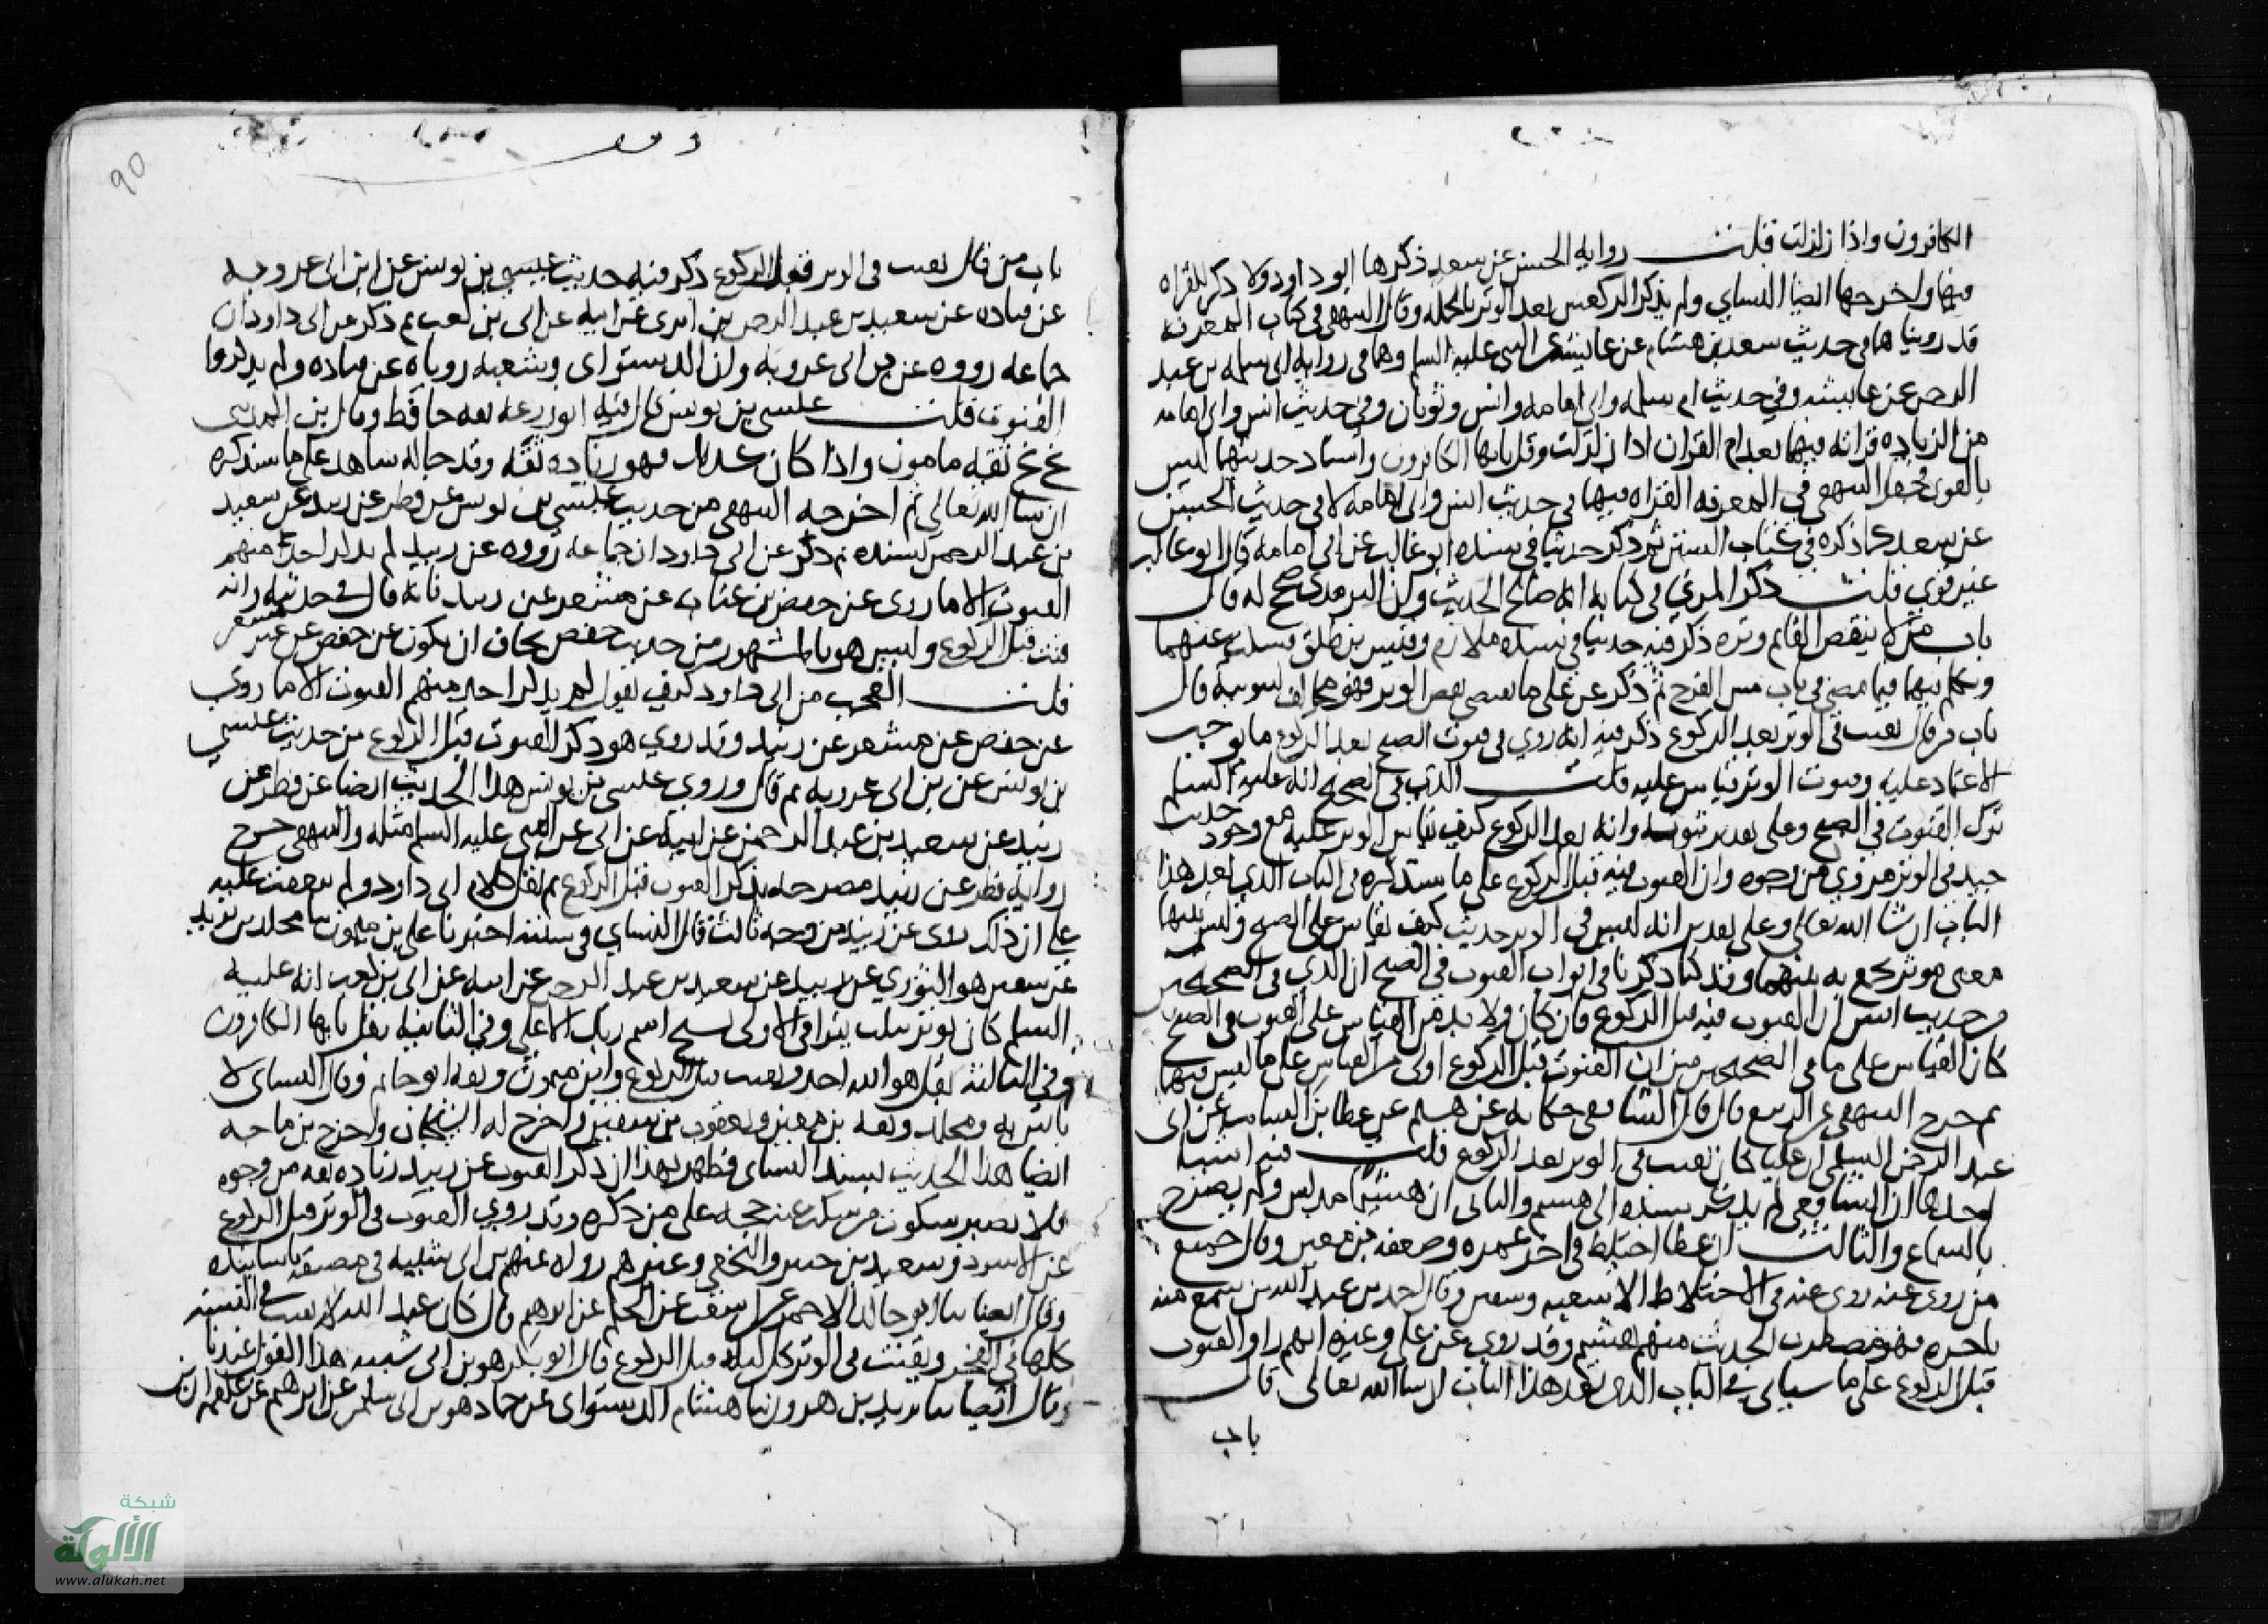 الكافرون واذا زلزلت قلت رواية الحسن عن سعد ذكرها ابو داود ولا ذكر للقراه
فيها واخرجها ايضا النساي ولم يذكر الركعتين بعد الوتر بالجملة وقال البيهقي في كتاب المعرفه
قد رويناهما في حديث سعد بن هشام عن عايشه عن النبي عليه السلم وهما في رواية ابي سلمه بن عبد
الرحمن عن عايشه وفي حديث ام سلمه وابي امامه وانس وثوبان وفي حديث انس وابي امامه
من الزياده قراته فيهما بعد ام القران اذا زلزلت وقل يايها الكافرون واسناد حديثهما ليس
بالقوي فجعل البيهقي في المعرفه القراه فيها في حديث انس وابي امامه لا في حديث الحسن
عن سعد كما ذكره في كتاب السنن ثم ذكر حديثا في سنده ابو غالب عن ابي امامه قال ابو غالب
غير قوي قلت ذكر المزي في كتابه انه صالح الحديث وان الترمذي صحح له قال
باب من لا ينقض القايم وتره ذكر فيه حديثا في سنده ملازم وقيس بن طلق فسكت عنهما
وتكلم فيهما فيما مضى في باب مس الفرج ثم ذكر عن علي ما يقتضي نقض الوتر فهو مخالف لتبويبه قال
باب من قال يقنت في الوتر بعد الركوع ذكر فيه انه روي في قنوت الصبح بعد الركوع ما يوجب
الاعتماد عليه وقنوت الوتر قياس عليه قلت الذي في الصحيح انه عليه السلم
ترك القنوت في الصبح وعلى تقدير ثبوته وانه بعد الركوع كيف يقاس الوتر عليه مع وجود حديث
جيد في الوتر مروي من وجوه وان القنوت فيه قبل الركوع على ما سنذكره في الباب الذي بعد هذا
الباب ان شا الله تعالى وعلى تقدير انه ليس في الوتر حديث كيف يقاس على الصبح وليس بينهما
معنى موثر يجمع به بينهما وقد كنا ذكرنا في ابواب القنوت في الصبح ان الذي في الصحيحين
من حديث انس ان القنوت فيه قبل الركوع فان كان ولا بد من القياس على القنوت في الصبح
كان القياس على ما في الصحيحين من ان القنوت قبل الركوع اولى من القياس على ما ليس فيهما
ثم خرج البيهقي عن الربيع قال قال الشافعي حكايه عن هشيم عن عطا بن السايب عن ابي
عبد الرحمن السلمي ان عليا كان يقنت في الوتر بعد الركوع قلت فيه اشيا
احدها ان الشافعي لم يذكر سنده الى هشيم والثاني ان هشيما مدلس ولم يصرح
بالسماع والثالث ان عطا اختلط في اخر عمره وضعفه بن معين وقال جميع
من روى عنه روى عنه في الاختلاط الا شعبه وسفين وقال احمد بن عبد الله من سمع منه
باخره فهو مضطرب الحديث منهم هشيم وقد روي عن علي وغيره انهم راوا القنوت
قبل الركوع على ما سياتي في الباب الذي بعد هذا الباب ان شا الله تعالى قال
باب
90
باب من قال يقنت في الوتر قبل الركوع ذكر فيه حديث عيسى بن يونس عن ابن ابي عروبه
عن قتاده عن سعيد بن عبد الرحمن بن ابزى عن ابيه عن ابي بن كعب ثم ذكر عن ابي داود ان
جماعه رووه عن بن ابي عروبه وان الدستواي وشعبه روياه عن قتاده ولم يذكروا
القنوت قلت عيسى بن يونس قال فيه ابو زرعه ثقه حافظ وقال بن المديني
بخ بخ ثقه مامون واذا كان كذلك فهو زياده ثقه وقد جا له شاهد على ما سنذكره
ان شا الله تعالى ثم اخرجه البيهقي من حديث عيسى بن يونس عن فطر عن زبيد عن سعيد
بن عبد الرحمن بسنده ثم ذكر عن ابي داود ان جماعه رووه عن زبيد لم يذكر احد منهم
القنوت الا ما روى عن حفص بن غياث عن مسعر عن زبيد فانه قال في حديثه وانه
قنت قبل الركوع وليس هو بالمشهور من حديث حفص يخاف ان يكون عن حفص عن غير مسعر
قلت العجب من ابي داود كيف يقول لم يذكر احد منهم القنوت الا ما روي
عن حفص عن مسعر عن زبيد وقد روي هو ذكر القنوت قبل الركوع من حديث عيسى
بن يونس عن بن ابي عروبه ثم قال وروي عيسى بن يونس هذا الحديث ايضا عن فطر عن
زبيد عن سعيد بن عبد الرحمن عن ابيه عن ابي عن النبي عليه السلم مثله والبيهقي خرج
رواية فطر عن زبيد مصرحه بذكر القنوت قبل الركوع ثم نقل كلام ابي داود ولم يتعقب عليه
على ان ذلك روى عن زبيد من وجه ثالث قال النساي في سننه اخبرنا علي بن ميمون ثنا مخلد بن يزيد
عن سفين هو الثوري عن زبيد عن سعيد بن عبد الرحمن عن ابيه عن ابي بن كعب انه عليه
السلم كان يوتر بثلاث يقرا في الاولى بسبح اسم ربك الاعلى وفي الثانيه بقل يايها الكافرون
وفي الثالثه بقل هو الله احد ويقنت قبل الركوع وابن ميمون وثقه ابو حاتم وقال النساي لا
باس به ومخلد وثقه بن معين ويعقوب بن سفين واخرج له الشيخان واخرج بن ماجه
ايضا هذا الحديث بسند النساي فظهر بهذا ان ذكر القنوت عن زبيد زياده ثقه من وجوه
فلا يصير سكوت من سكت عنه حجه على من ذكره وقد روي القنوت في الوتر قبل الركوع
عن الاسود وسعيد بن جبير والنخعي وغيرهم رواه عنهم بن ابي شيبه في مصنفه باسانيده
وقال ايضا ثنا ابو خالد الاحمر عن اشعث عن الحكم عن ابرهيم قال كان عبد الله لا يقنت في السنه
كلها في الفجر ويقنت في الوتر كل ليله قبل الركوع قال ابو بكر هو بن ابي شيبه هذا القول عندنا
وقال ايضا ثنا يزيد بن هرون ثنا هشام الدستواي عن حماد هو بن ابي سليمن عن ابرهيم عن علقمه ان بن
شبكة
الألوكة
www.alukah.net